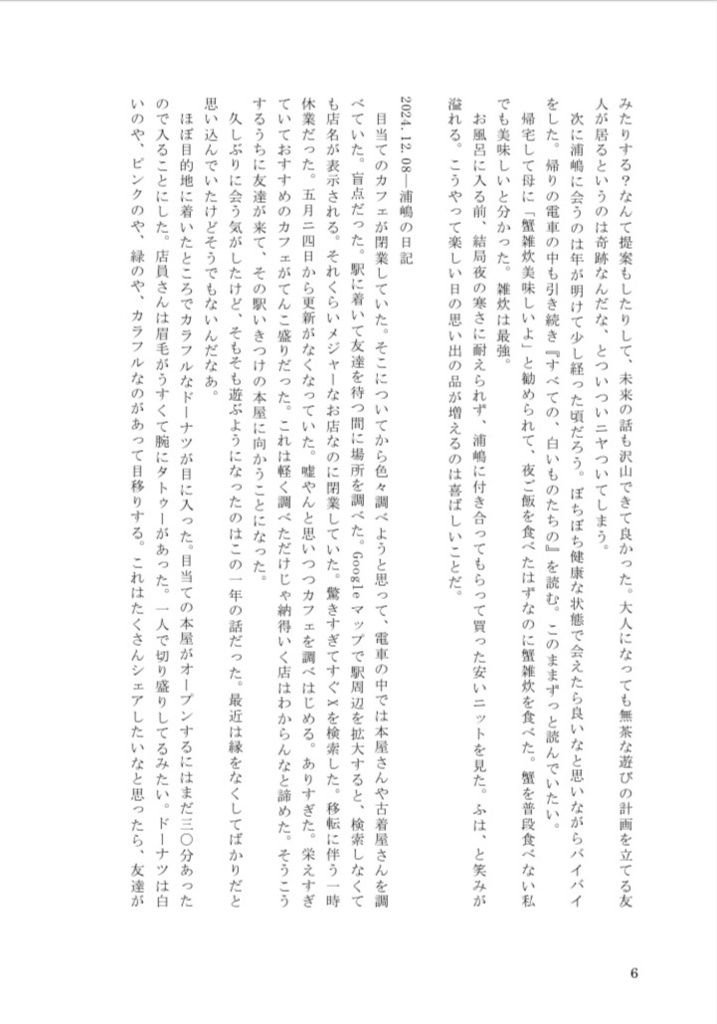 みたりする？なんて提案もしたりして、未来の話も沢山できて良かった。大人になっても無茶な遊びの計画を立てる友
人が居るというのは奇跡なんだな、とついついニヤついてしまう。
次に浦嶋に会うのは年が明けて少し経った頃だろう。ぼちぼち健康な状態で会えたら良いなと思いながらバイバイ
をした。帰りの電車の中も引き続き『すべての、白いものたちの』を読む。このままずっと読んでいたい。
帰宅して母に「蟹雑炊美味しいよ」と勧められて、夜ご飯を食べたはずなのに蟹雑炊を食べた。蟹を普段食べない私
でも美味しいと分かった。雑炊は最強。
お風呂に入る前、結局夜の寒さに耐えられず、浦嶋に付き合ってもらって買った安いニットを見た。ふは、と笑みが
溢れる。こうやって楽しい日の思い出の品が増えるのは喜ばしいことだ。
2024.12.08―浦嶋の日記
目当てのカフェが閉業していた。そこについてから色々調べようと思って、電車の中では本屋さんや古着屋さんを調
べていた。盲点だった。駅に着いて友達を待つ間に場所を調べた。Googleマップで駅周辺を拡大すると、検索しなくて
も店名が表示される。それくらいメジャーなお店なのに閉業していた。驚きすぎてすぐXを検索した。移転に伴う一時
休業だった。五月二四日から更新がなくなっていた。嘘やんと思いつつカフェを調べはじめる。ありすぎた。栄えすぎ
ていておすすめのカフェがてんこ盛りだった。これは軽く調べただけじゃ納得いく店はわからんなと諦めた。そうこう
するうちに友達が来て、その駅いきつけの本屋に向かうことになった。
久しぶりに会う気がしたけど、そもそも遊ぶようになったのはこの一年の話だった。最近は縁をなくしてばかりだと
思い込んでいたけどそうでもないんだなあ。
ほぼ目的地に着いたところでカラフルなドーナツが目に入った。目当ての本屋がオープンするにはまだ三〇分あった
ので入ることにした。店員さんは眉毛がうすくて腕にタトゥーがあった。一人で切り盛りしてるみたい。ドーナツは白
いのや、ピンクのや、緑のや、カラフルなのがあって目移りする。これはたくさんシェアしたいなと思ったら、友達が
6